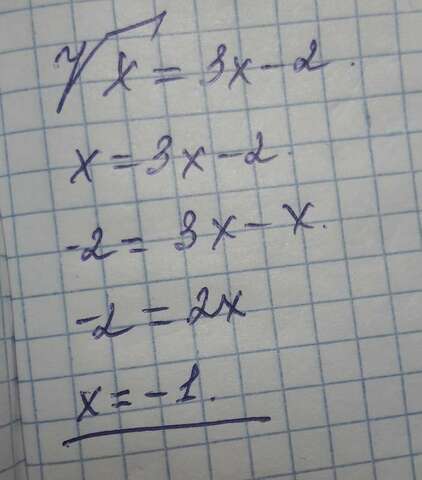 7√x = 3x - 2.
x = 3x - 2.
-2 = 3x - x.
-2 = 2x
x = -1.